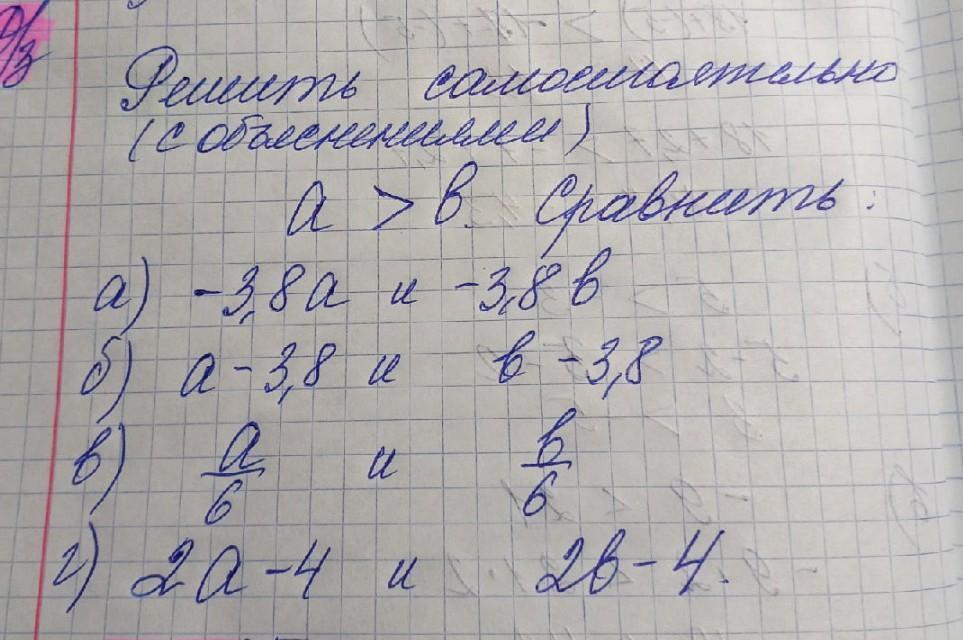 Д/з
Решить самостоятельно
(с объяснениями)
a > в. Сравнить:
а) -3,8a и -3,8в
б) a - 3,8 и в - 3,8
в) a/6 и в/6
г) 2a - 4 и 2в - 4.